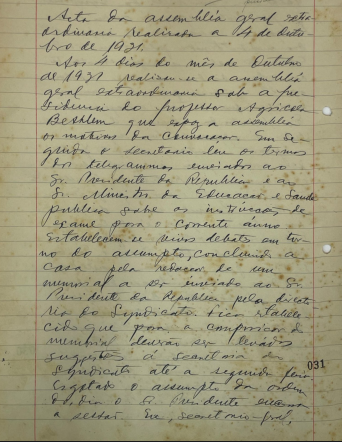 Acta da assembléa geral extra-
ordinaria realizada a 4 de Outu-
bro de 1931.
Aos 4 dias do mês de Outubro
de 1931 realizou-se a assembléa
geral extraordinaria sob a pre-
sidencia do professor Agricola
Bethlem que expoz a assembléa
os motivos da convocação. Em se-
guida o secretario leu os termos
dos telegrammas enviados ao
Sr. Presidente da Republica e ao
Sr. Ministro da Educação e Saude
publica sobre as instrucções de
exame para o corrente anno.
Estabelecem-se vivos debates em tor-
no do assumpto, concluindo a
casa pela redacção de um
memorial a ser enviado ao Sr.
Presidente da Republica pela directo-
ria do Syndicato. Fica estabele-
cido que para a composição do
memorial deverão ser levadas
suggestões á secretaria do
Syndicato até a segunda feira.
Esgotado o assumpto da ordem
do dia o Sr. Presidente encerra
a sessão. Eu, secretario-geral,
031